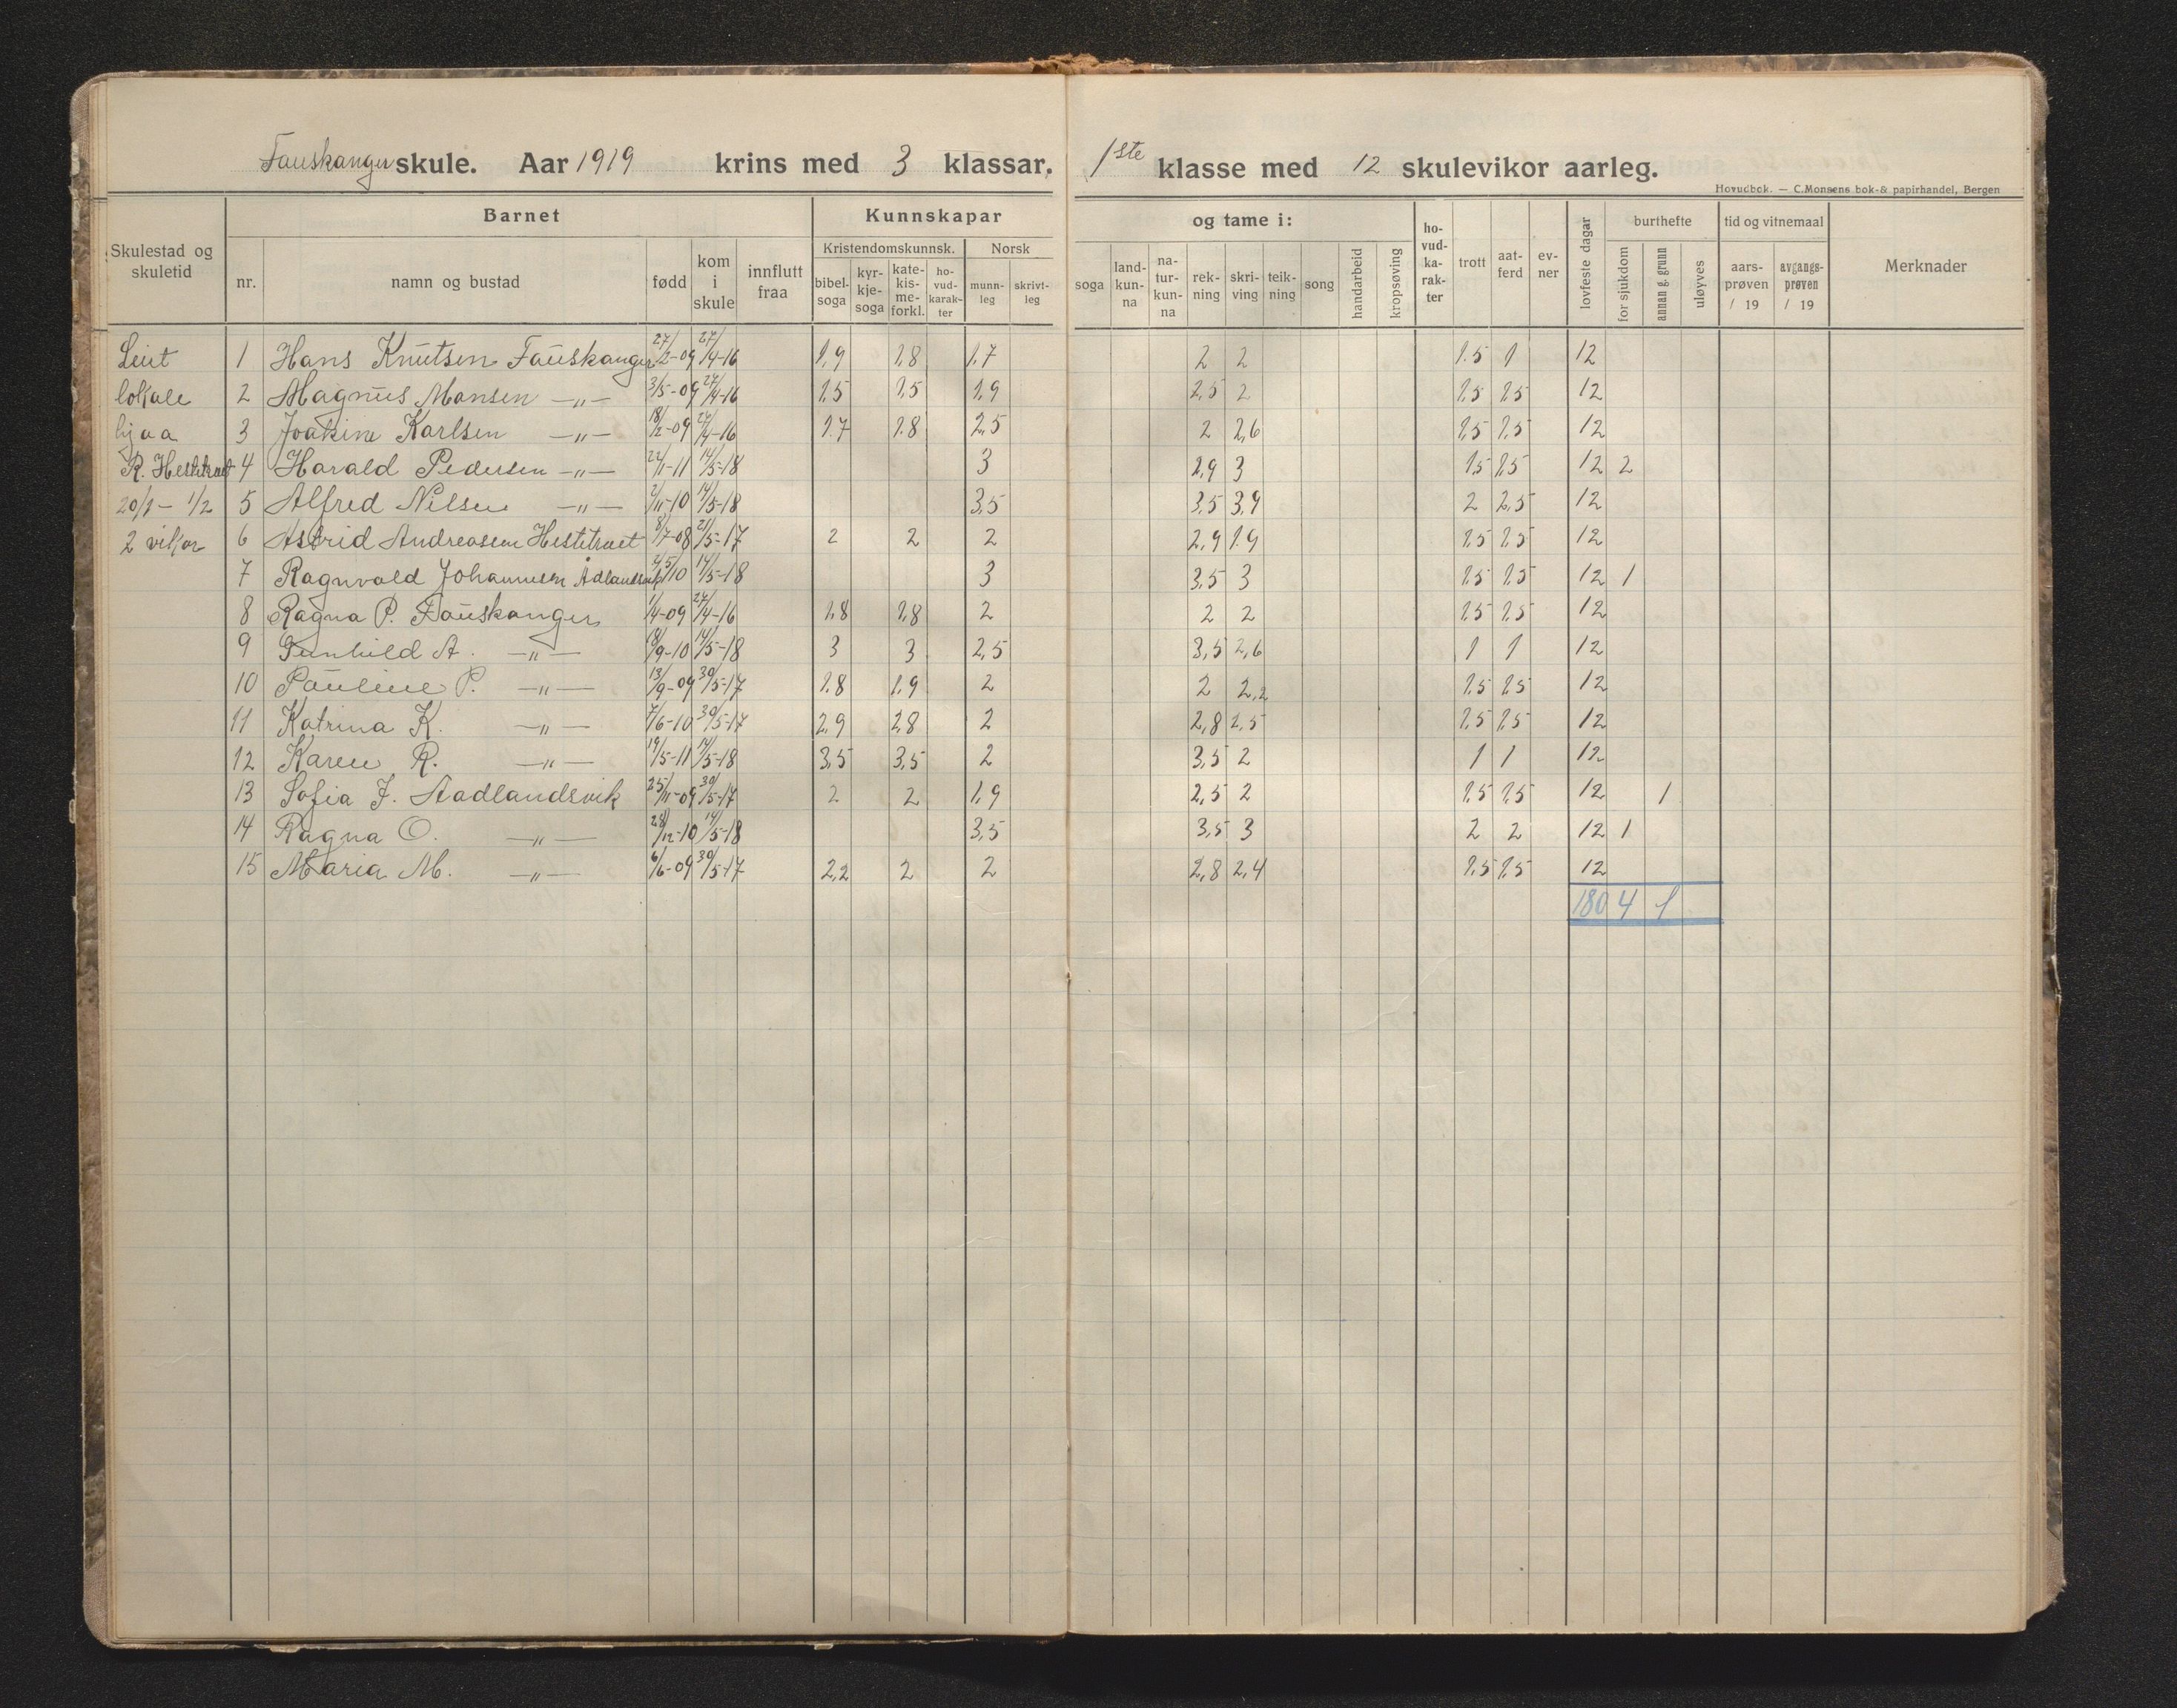 Fauskanger skule. Aar 1919 krins med 3 klassar, 1ste klasse med 12 skulevikor aarleg.
Hovudbok. — C. Monsens bok- & papirhandel, Bergen
Skulestad og skuletid
Barnet
nr.
namn og bustad
fødd
kom i skule
innflutt fraa
Kunnskapar
Kristendomskunnsk.
bibel-soga
kyr-kje-soga
kate-kis-me-forkl.
ho-vud-karak-ter
Norsk
munn-leg
skrivt-leg
og tame i:
soga
land-kun-na
na-tur-kun-na
rek-ning
skri-ving
teik-ning
song
handarbeid
kropsøving
ho-vud-ka-rak-ter
trott
aat-ferd
ev-ner
lovfeste dagar
burthefte
for sjukdom
annan g. grunn
uløyves
tid og vitnemaal
aars-prøven / 19
avgangs-prøven / 19
Merknader
Leiet 1 Hans Knutsen Fauskanger 27/2-09 27/4-16 1,9 1,8 1,7 2 2 1,5 1 12
lokale 2 Magnus Monsen —„— 3/5-09 27/4-16 1,5 1,5 1,9 2,5 2 1,5 1,5 12
hjaa 3 Joakim Karlsen —„— 18/2-09 27/4-16 1,7 1,8 2,5 2 2,6 1,5 1,5 12
R. Hestetræet 4 Harald Pedersen —„— 22/1-11 14/5-18 3 2,9 3 1,5 1,5 12 2
20/1 - 1/2 5 Alfred Nilsen —„— 2/11-10 14/5-18 3,5 3,5 3,4 2 2,5 12
2 vikor 6 Astrid Andreasen Hestetræet 8/7-08 21/5-17 2 2 2 2,9 1,9 1,5 1,5 12
7 Ragnvald Johannesen 14/5-18 3 3,5 3 1,5 1,5 12 1
8 Ragna P. Fauskanger 1/4-09 27/4-16 1,8 1,8 2 2 2 1,5 1,5 12
9 Gunhild A. —„— 18/9-10 14/5-18 3 3 2,5 3,5 2,6 1 1 12
10 Pauline P. —„— 13/9-09 30/5-17 1,8 1,9 2 2 2,2 1,5 1,5 12
11 Katrina K. —„— 7/6-10 30/5-17 2,9 2,8 2 2,8 2,5 1,5 1,5 12
12 Karen R. —„— 19/5-11 14/5-18 3,5 3,5 2 3,5 2 1 1 12
13 Sofia J. Aadlandsvik 25/11-09 30/5-17 2 2 1,9 2,5 2 1,5 1,5 12 1
14 Ragna O. —„— 28/12-10 14/5-18 3,5 3,5 3 2 2 12 1
15 Maria M. —„— 6/6-09 30/5-17 2,2 2 2 2,8 2,4 1,5 1,5 12
180 4 1